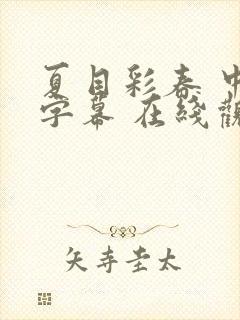 夏目彩春 中
字幕 在綫觀
矢寺圭太